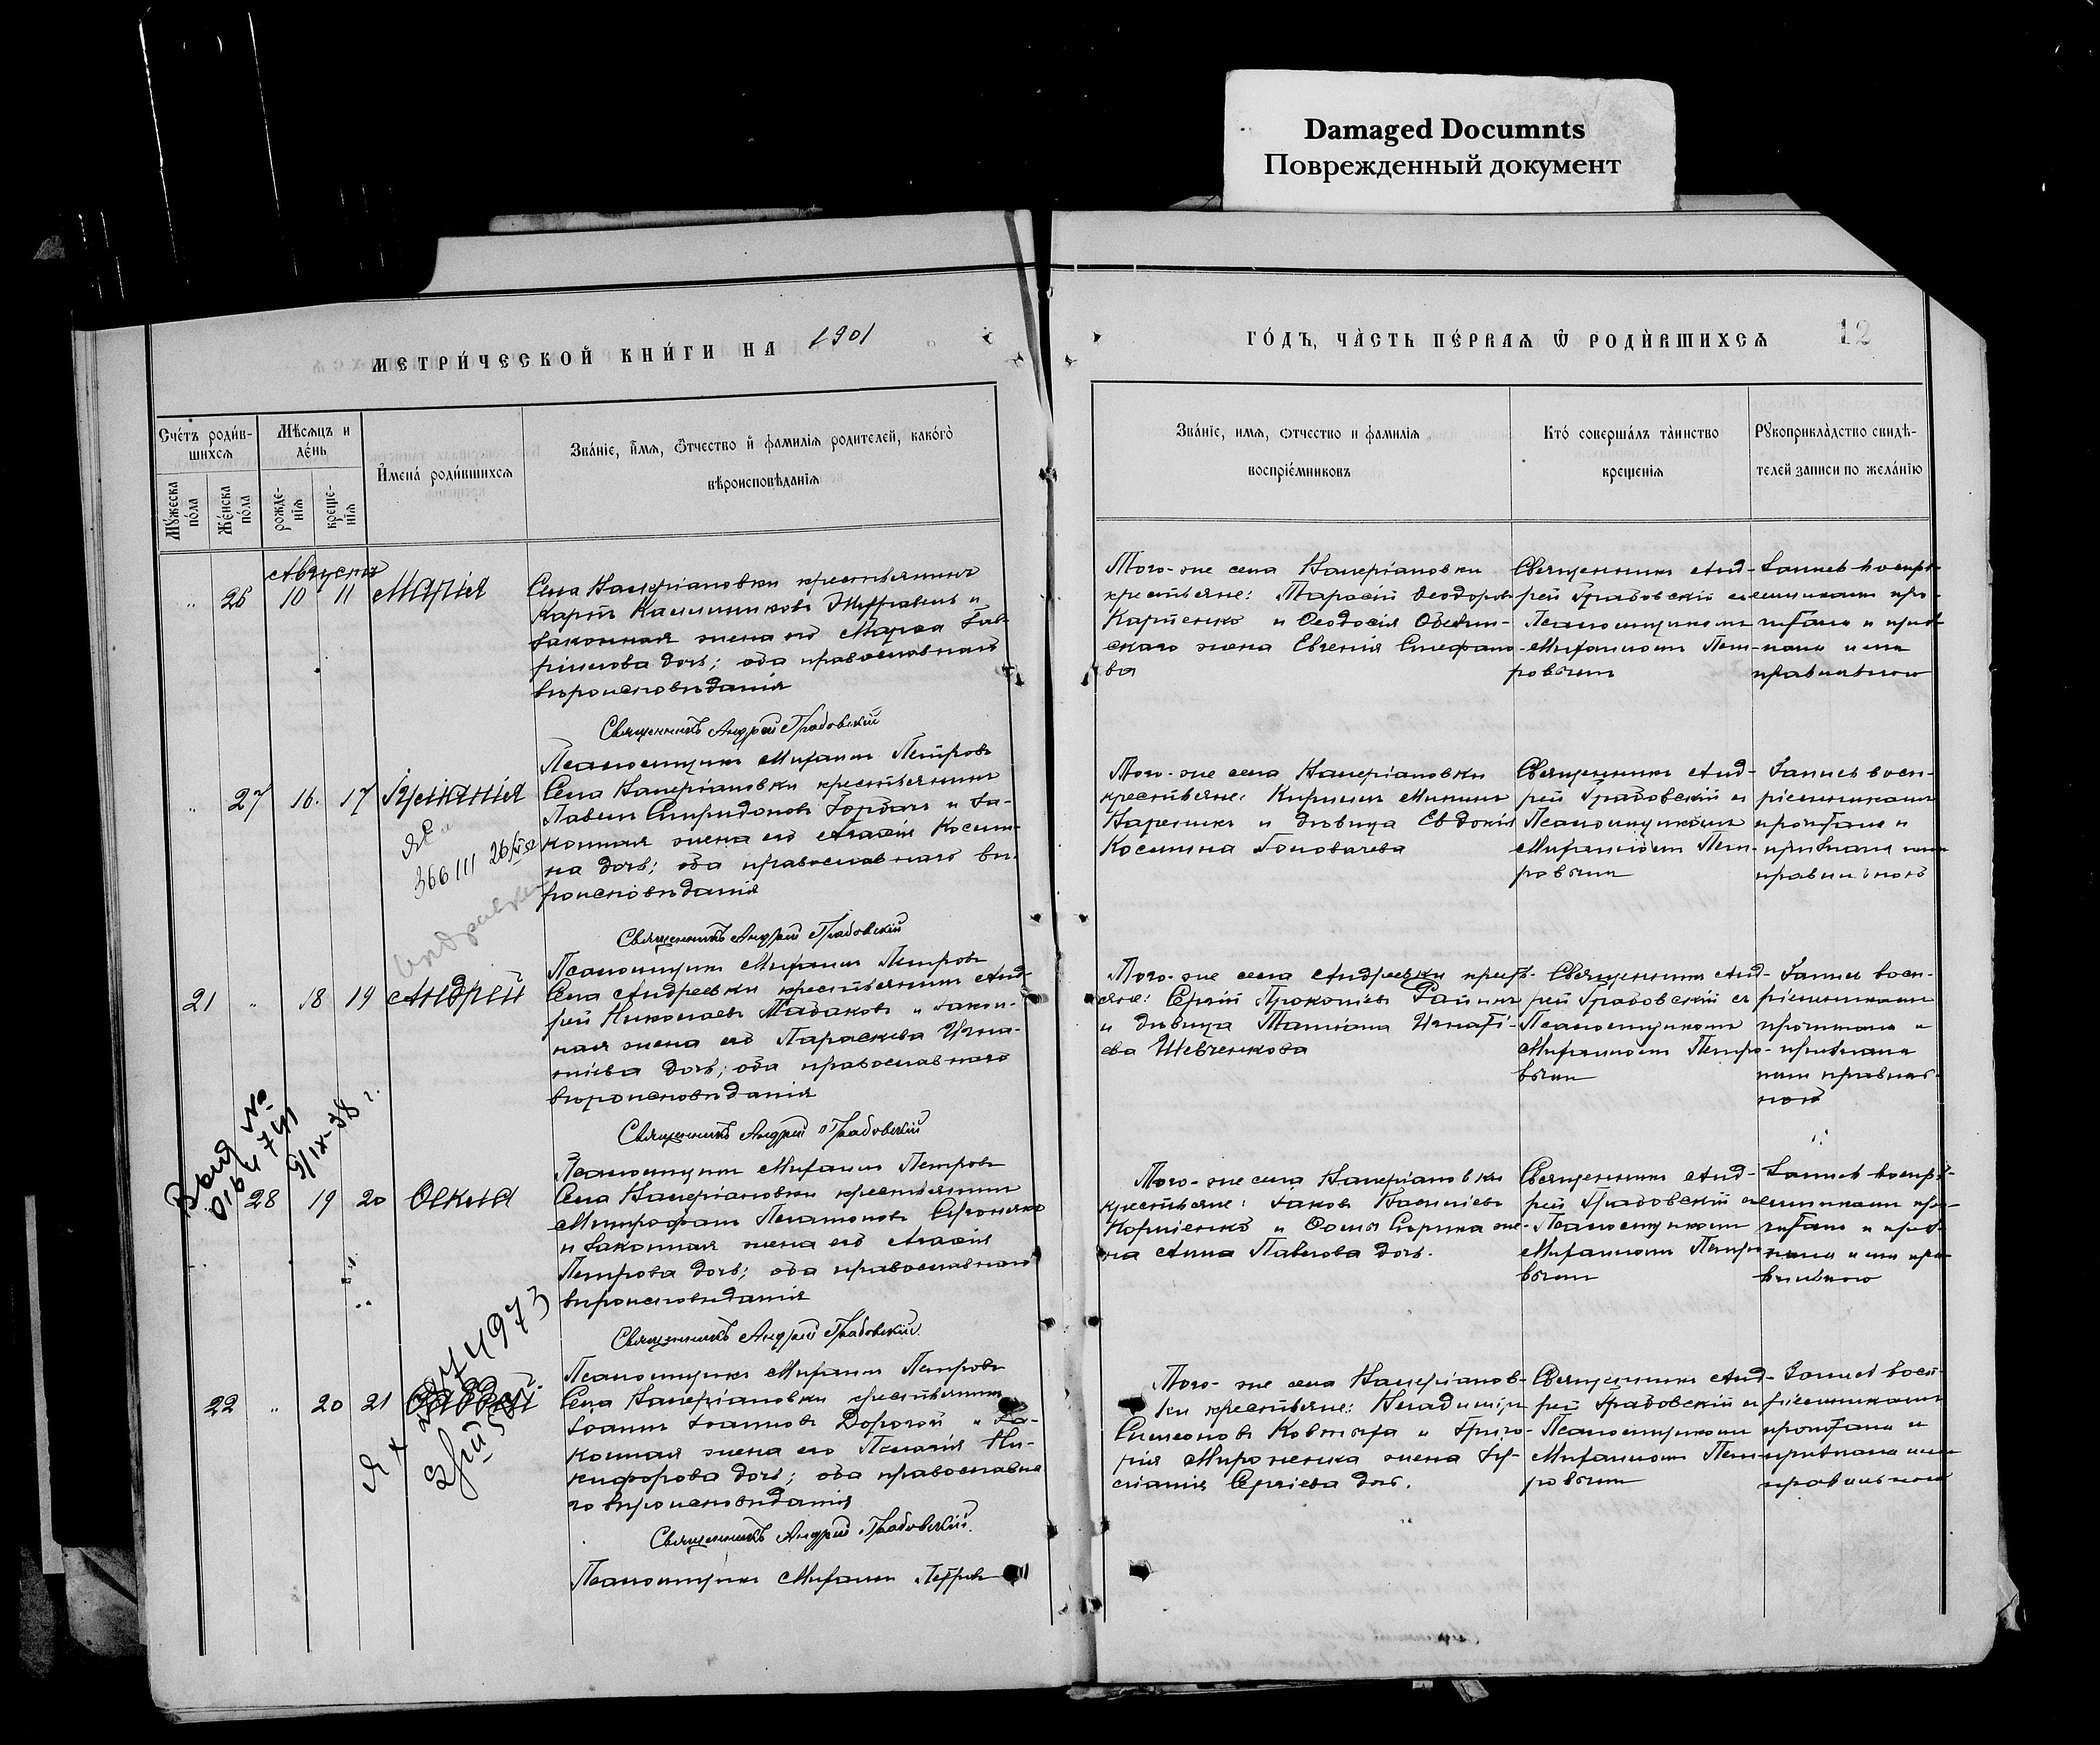 Damaged Documnts
Поврежденный документ
МЕТРИ́ЧЕСКОЙ КНИ́ГИ НА 1901
ГО́ДЪ, ЧА̀СТЬ ПЕ́РВАѦ Ѿ РОДЍВШИХСѦ 12
Счéтъ роди́в-
шихсѧ
Мѣ́сѧцъ и
дéнь
И҆мена̀ роди́вшихсѧ
Зва́нїе, и҆́мѧ, ѻ҆́тчество и҆ фами́лїѧ роди́телей, како́гѡ
вѣроисповѣ́данїѧ
Мꙋ́жеска
по́ла
Же́нска
по́ла
рожде́-
нїѧ
креще́-
нїѧ
Зва́нїе, имѧ, ѻтчество и фамилїѧ
воспрїе́мниковъ
Кто́ соверша́лъ та̀инство
крещенїѧ
Рꙋкоприкла̀дство свидѣ́-
телей записи по жела́нїю
Августъ
„ 26 10 11 Марія
Села Валеріановки крестьянинъ
Карпъ Каллиниковъ и
законная жена его Марѳа Гав-
рілова дочь; оба православнаго
вѣроисповѣданія
Священникъ Андрей Грабовскій
Псаломщикъ Михаилъ Петровъ
Того-же села Валеріановки
крестьяне: Тарасій Ѳеодоровъ
Карпенко и Ѳеодосія
скаго жена Евгенія Стефано-
ва
Священникъ Анд-
рей Грабовскій съ
Псаломщикомъ
Михаиломъ Пет-
ровымъ
Запись воспрі-
емниками про-
читана и приз-
нана ими
правильною
„ 27 16. 17
Села Валеріановки крестьянинъ
Павелъ Спиридоновъ Горбань и за-
конная жена его Агаѳія Косьми-
на дочь; оба православнаго вѣ-
роисповѣданія
Священникъ Андрей Грабовскій
Псаломщикъ Михаилъ Петровъ
Того-же села Валеріановки
крестьяне: Кириллъ Мининъ
и дѣвица Евдокія
Косьмина Головачева
Священникъ Анд-
рей Грабовскій и
Псаломщикомъ
Михаиломъ Пет-
ровымъ
Запись восп-
ріемниками
прочитана и
признана ими
правильною
21 „ 18 19 Андрей
Села Андреевки крестьянинъ Анд-
рей Николаевъ Табаковъ и закон-
ная жена его Параскева Игна-
тіева дочь; оба православнаго
вѣроисповѣданія
Священникъ Андрей Грабовскій
Псаломщикъ Михаилъ Петровъ
Того-же села Андреевки кресть-
яне: Сергій Прокопіевъ
и дѣвица Татіана Игнаті-
ева Шевченкова
Священникъ Анд-
рей Грабовскій съ
Псаломщикомъ
Михаиломъ Петро-
вымъ
Запись восп-
ріемниками
прочитана и
признана
ими правиль-
ною
28 19 20 Ѳекла
Села Валеріановки крестьянинъ
Митрофанъ Платоновъ
и законная жена его Агаѳія
Петрова дочь; оба православнаго
вѣроисповѣданія
Священникъ Андрей Грабовскій
Псаломщикъ Михаилъ Петровъ
Того-же села Валеріановки
крестьяне: Іаковъ Василіевъ
Корніенко и Ѳомы же-
на Анна Павлова дочь.
Священникъ Анд-
рей Грабовскій съ
Псаломщикомъ
Михаиломъ Петро-
вымъ
Запись воспрі-
емниками про-
читана и приз-
нана ими пра-
вильною
22 „ 20 21
Села Валеріановки крестьянинъ
Іоаннъ Іоанновъ Дорогой и за-
конная жена его Пелагія Ни-
кифорова дочь; оба православна-
го вѣроисповѣданія
Священникъ Андрей Грабовскій.
Псаломщикъ Михаилъ Петровъ
Того-же села Валеріанов-
ки крестьяне: Владиміръ
Симеоновъ Ковтыра и Григо-
рія Мироненка жена Іу-
сіанія Сергіева дочь.
Священникъ Анд-
рей Грабовскій и
Псаломщикомъ
Михаиломъ Пет-
ровымъ
Запись восп-
ріемниками
прочитана и
признана ими
правильною